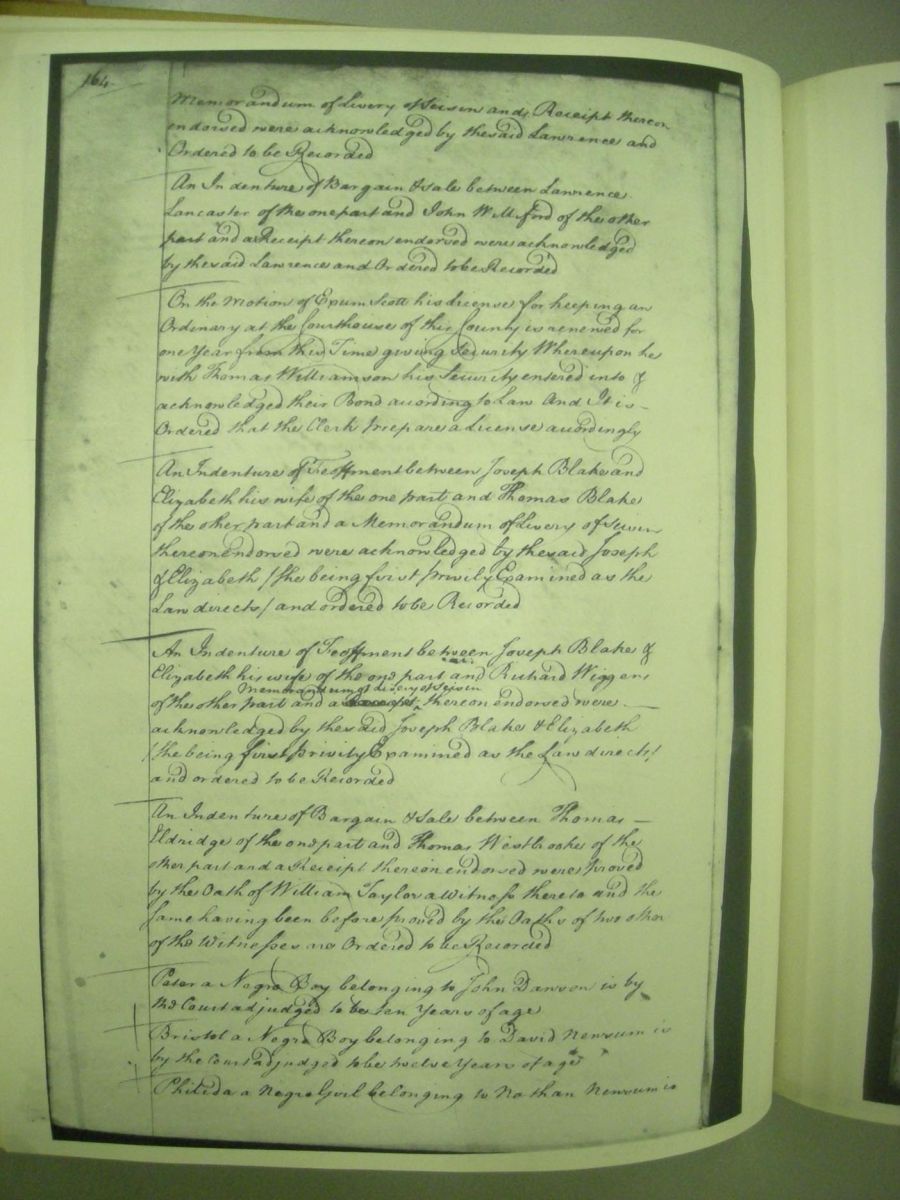 164
Memorandum of Livery of Seisin and Receipt thereon
endorsed were acknowledged by the said Lawrence and
Ordered to be Recorded
An Indenture of Bargain & sale between Lawrence
Lancaster of the one part and John Williford of the other
part and a Receipt thereon endorsed were acknowledged
by the said Lawrence and Ordered to be Recorded
On the Motion of Exum Scott his License for keeping an
Ordinary at the Courthouse of this County is renewed for
one Year from this Time giving Security Whereupon he
with Thomas Williamson his Security entered into &
acknowledged their Bond according to Law And It is
Ordered that the Clerk Prepare a License accordingly
An Indenture of Feoffment between Joseph Blake and
Elizabeth his wife of the one part and Thomas Blake
of the other part and a Memorandum of Livery of Seisin
thereon endorsed were acknowledged by the said Joseph
& Elizabeth /she being first privily Examined as the
Law directs/ and ordered to be Recorded
An Indenture of Feoffment between Joseph Blake &
Elizabeth his wife of the one part and Richard Wiggens
Memorandum of Livery of Seisin
of the other part and a thereon endorsed were
acknowledged by the said Joseph Blake & Elizabeth
/she being first privily Examined as the Law directs/
and ordered to be Recorded
An Indenture of Bargain & Sale between Thomas
Eldridge of the one part and Thomas Westbrooke of the
other part and a Receipt thereon endorsed were Proved
by the Oath of William Taylor a Witness thereto and the
same having been before proved by the Oaths of two other
of the Witnesses are Ordered to be Recorded
Peter a Negro Boy belonging to John Dawson is by
the Court adjudged to be ten Years of age
Bristol a Negro Boy belonging to David Newsum is
by the Court adjudged to be twelve Years of age
Philida a Negro Girl belonging to Nathan Newsum is